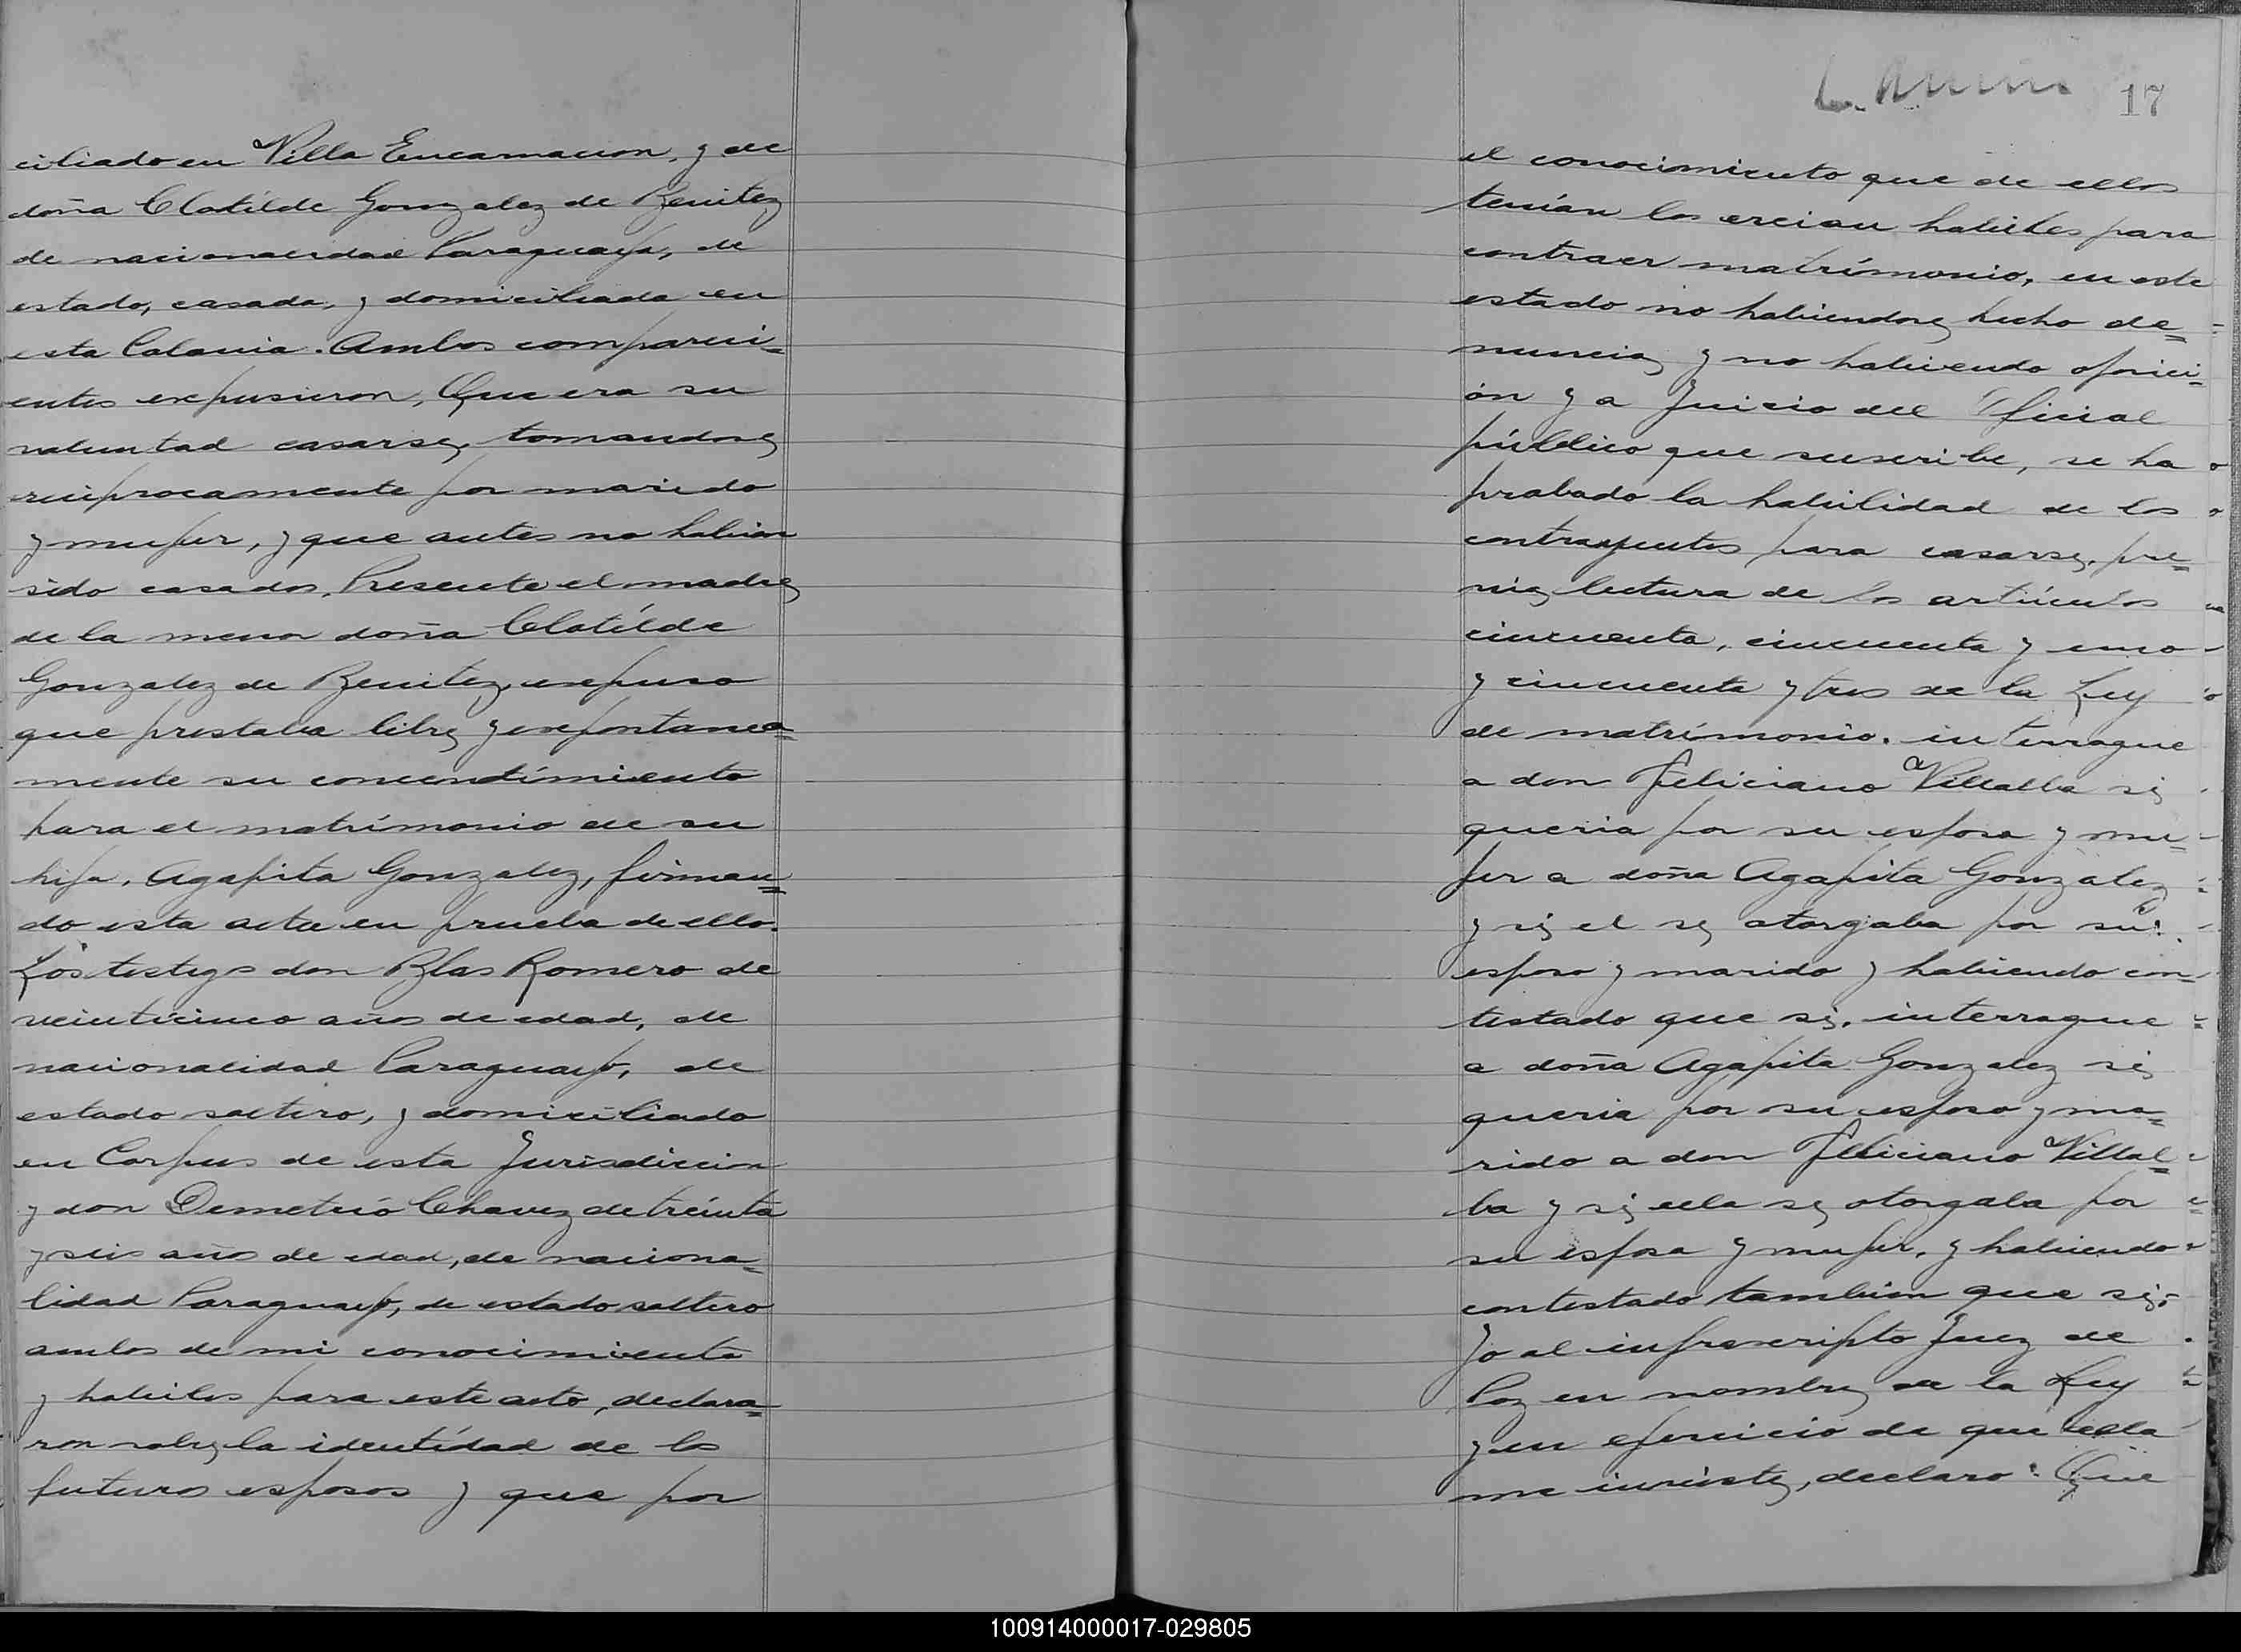 ciliado en Villa Encarnacion, y de
doña Clotilde Gonzalez de Benitez
de nacionalidad Paraguaya, de
estado, casada, y domiciliada en
esta Colonia. Ambos compareci=
entes expusieron, Que era su
voluntad casarse, tomandose
reciprocamente por marido
y mujer, y que antes no habian
sido casados. Presente el madre
de la menor doña Clotilde
Gonzalez de Benitez, expuso
que prestaba libre y expontanea=
mente su concendimiento
para el matrimonio de su
hija, Agapita Gonzalez, firman=
do esta acta en prueba de ello.
Los testigos don Blas Romero de
veinticinco años de edad, de
nacionalidad Paraguayo, de
estado soltero, y domiciliado
en Corpus de esta Jurisdiccion
y don Demetrio Chavez de treinta
y seis años de edad, de naciona=
lidad Paraguayo, de estado soltero
ambos de mi conocimiento
y habiles para este acto, declara=
ron sobre la identidad de los
futuros esposos y que por
17
el conocimiento que de ellos
tenían los creian habiles para
contraer matrimonio, en este
estado no habiendose hecho de=
nuncia y no habiendo oposici=
ón y a Juicio del Oficial
público que suscribe, se ha
probado la habilidad de los
contrayentes para casarse, pre=
via lectura de los artículos
cincuenta, cincuenta y uno
y cincuenta y tres de la Ley
de matrimonio. interrogue
a don Feliciano Villalba si
queria por su esposa y mu=
jer a doña Agapita Gonzalez
y si el se otorgaba por su
esposo y marido y habiendo con=
testado que si. interrogue
a doña Agapita Gonzalez si
queria por su esposo y ma=
rido a don Feliciano Villal=
ba y si ella se otorgaba por
su esposa y mujer, y habiendo
contestado tambien que si;
Yo al infrascripto Juez de
Paz en nombre de la Ley
y en ejercicio de que ella
me inviste, declaro: Que
100914000017-029805